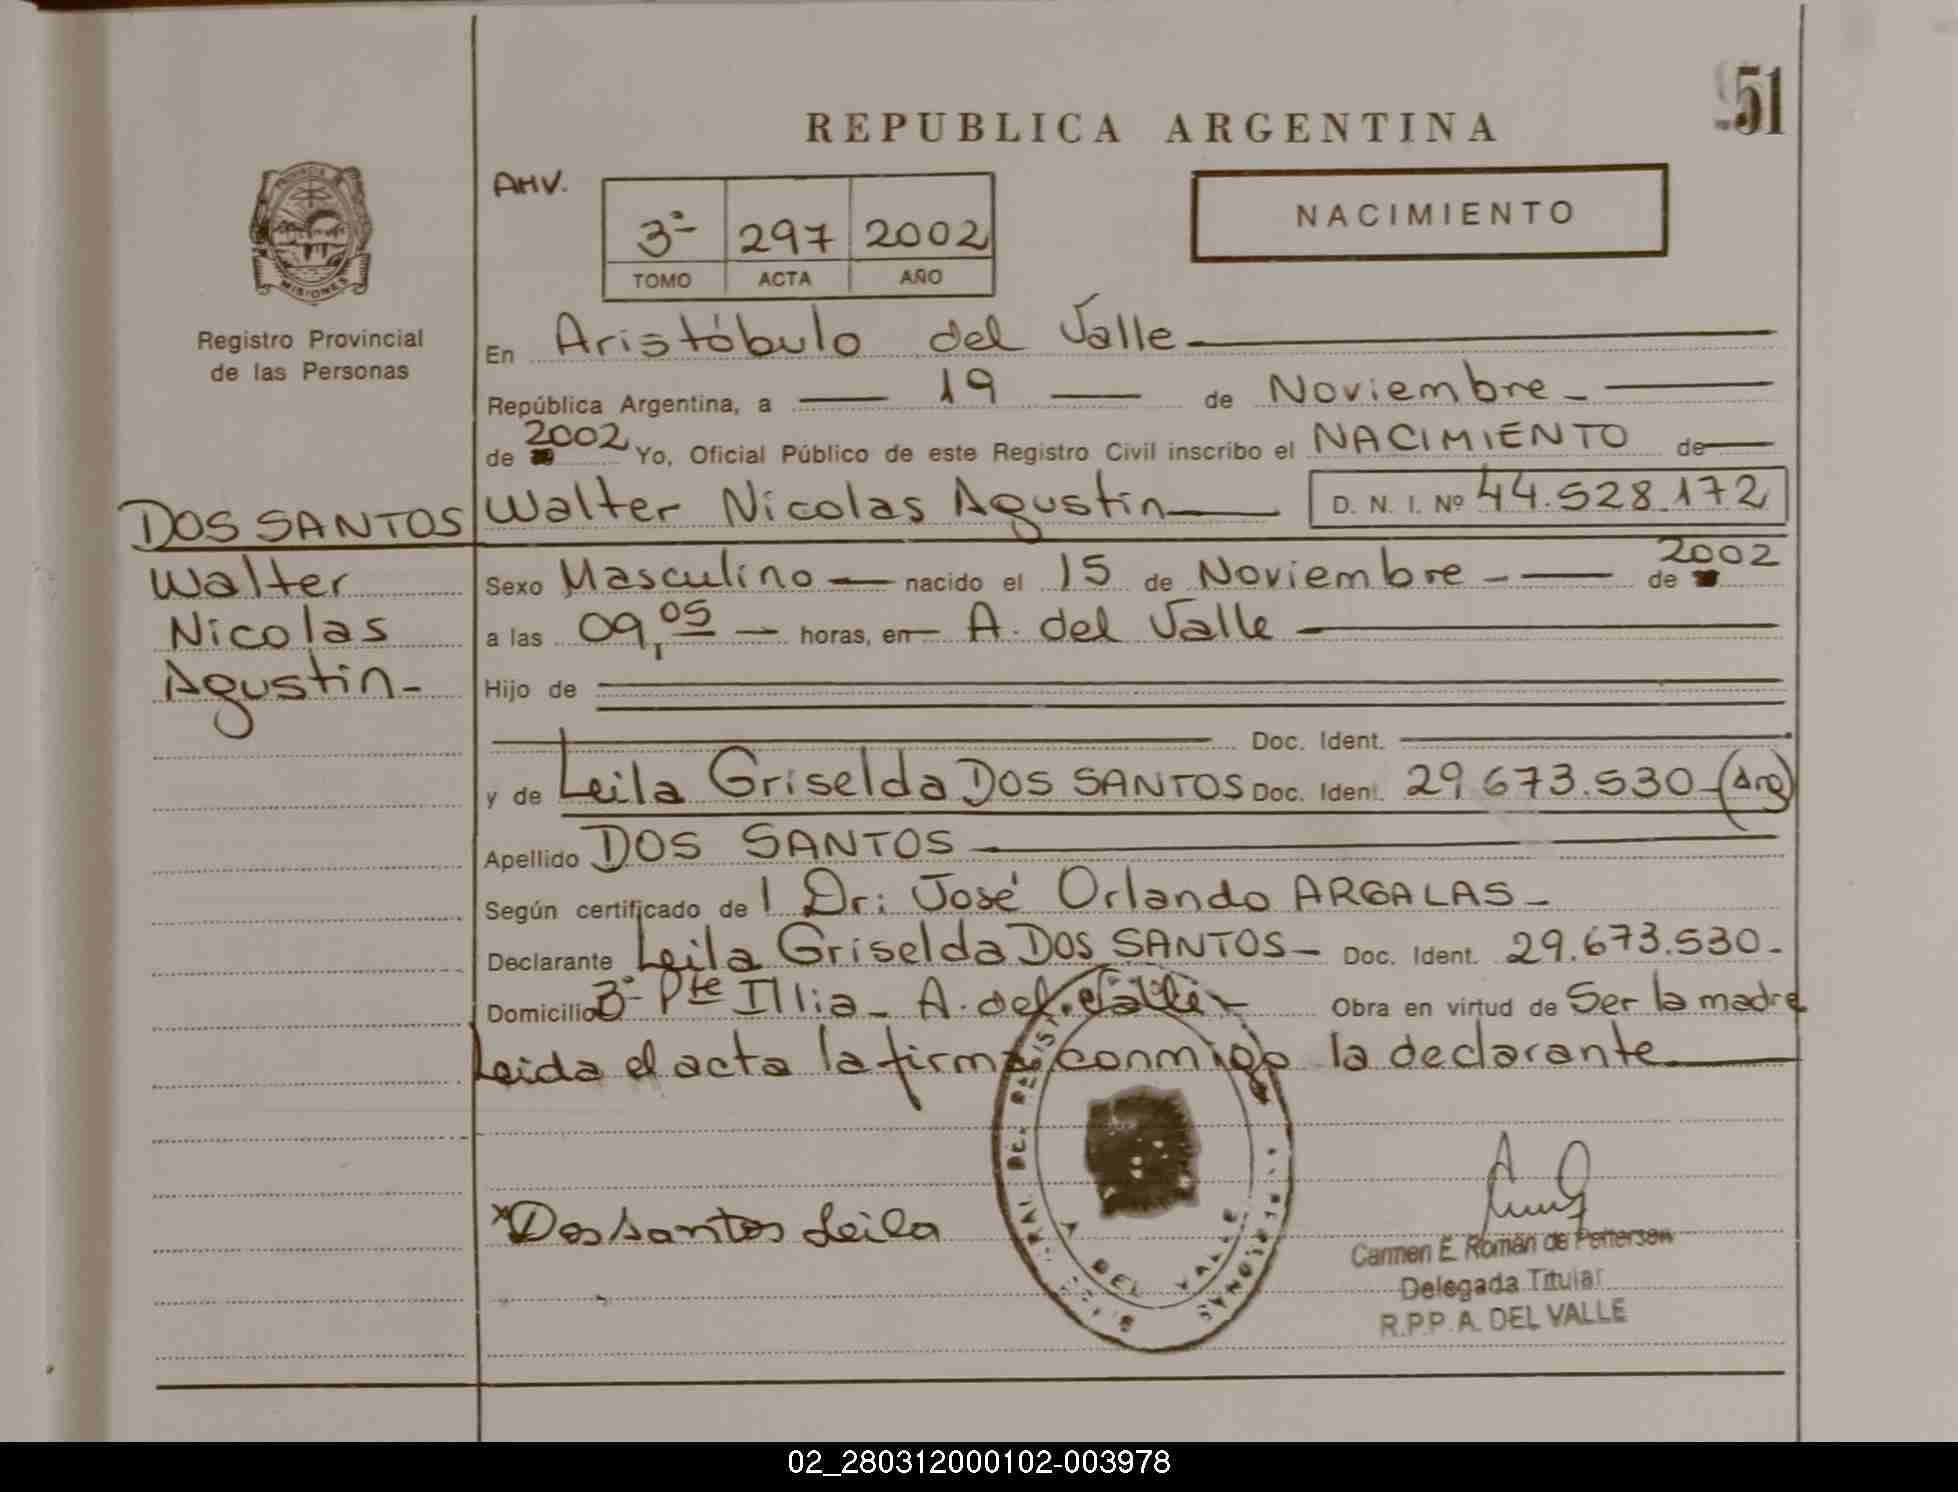 51
REPUBLICA ARGENTINA
AHV.
NACIMIENTO
3º 297 2002
TOMO ACTA AÑO
PROVINCIA
MISIONES
Registro Provincial
de las Personas
En Aristóbulo del Valle
República Argentina, a 19 de Noviembre
de 2002 Yo, Oficial Público de este Registro Civil inscribo el NACIMIENTO de
DOS SANTOS Walter Nicolas Agustin D. N. I. Nº 44.528.172
Walter
Nicolas
Agustin
Sexo Masculino nacido el 15 de Noviembre de 2002
a las 09,05 horas, en A. del Valle
Hijo de
Doc. Ident.
y de Leila Griselda DOS SANTOS Doc. Ident. 29.673.530 (Arg)
Apellido DOS SANTOS
Según certificado del Dr: José Orlando ARGALAS
Declarante Leila Griselda DOS SANTOS Doc. Ident. 29.673.530
Domicilio Bº Pte Illia - A. del Valle Obra en virtud de Ser la madre
Leida el acta la firma conmigo la declarante
x Dos Santos Leila
A DEL VALLE
MISIONES
Carmen E. Román de Pettersen
Delegada Titular
R.P.P. A. DEL VALLE
02_280312000102-003978